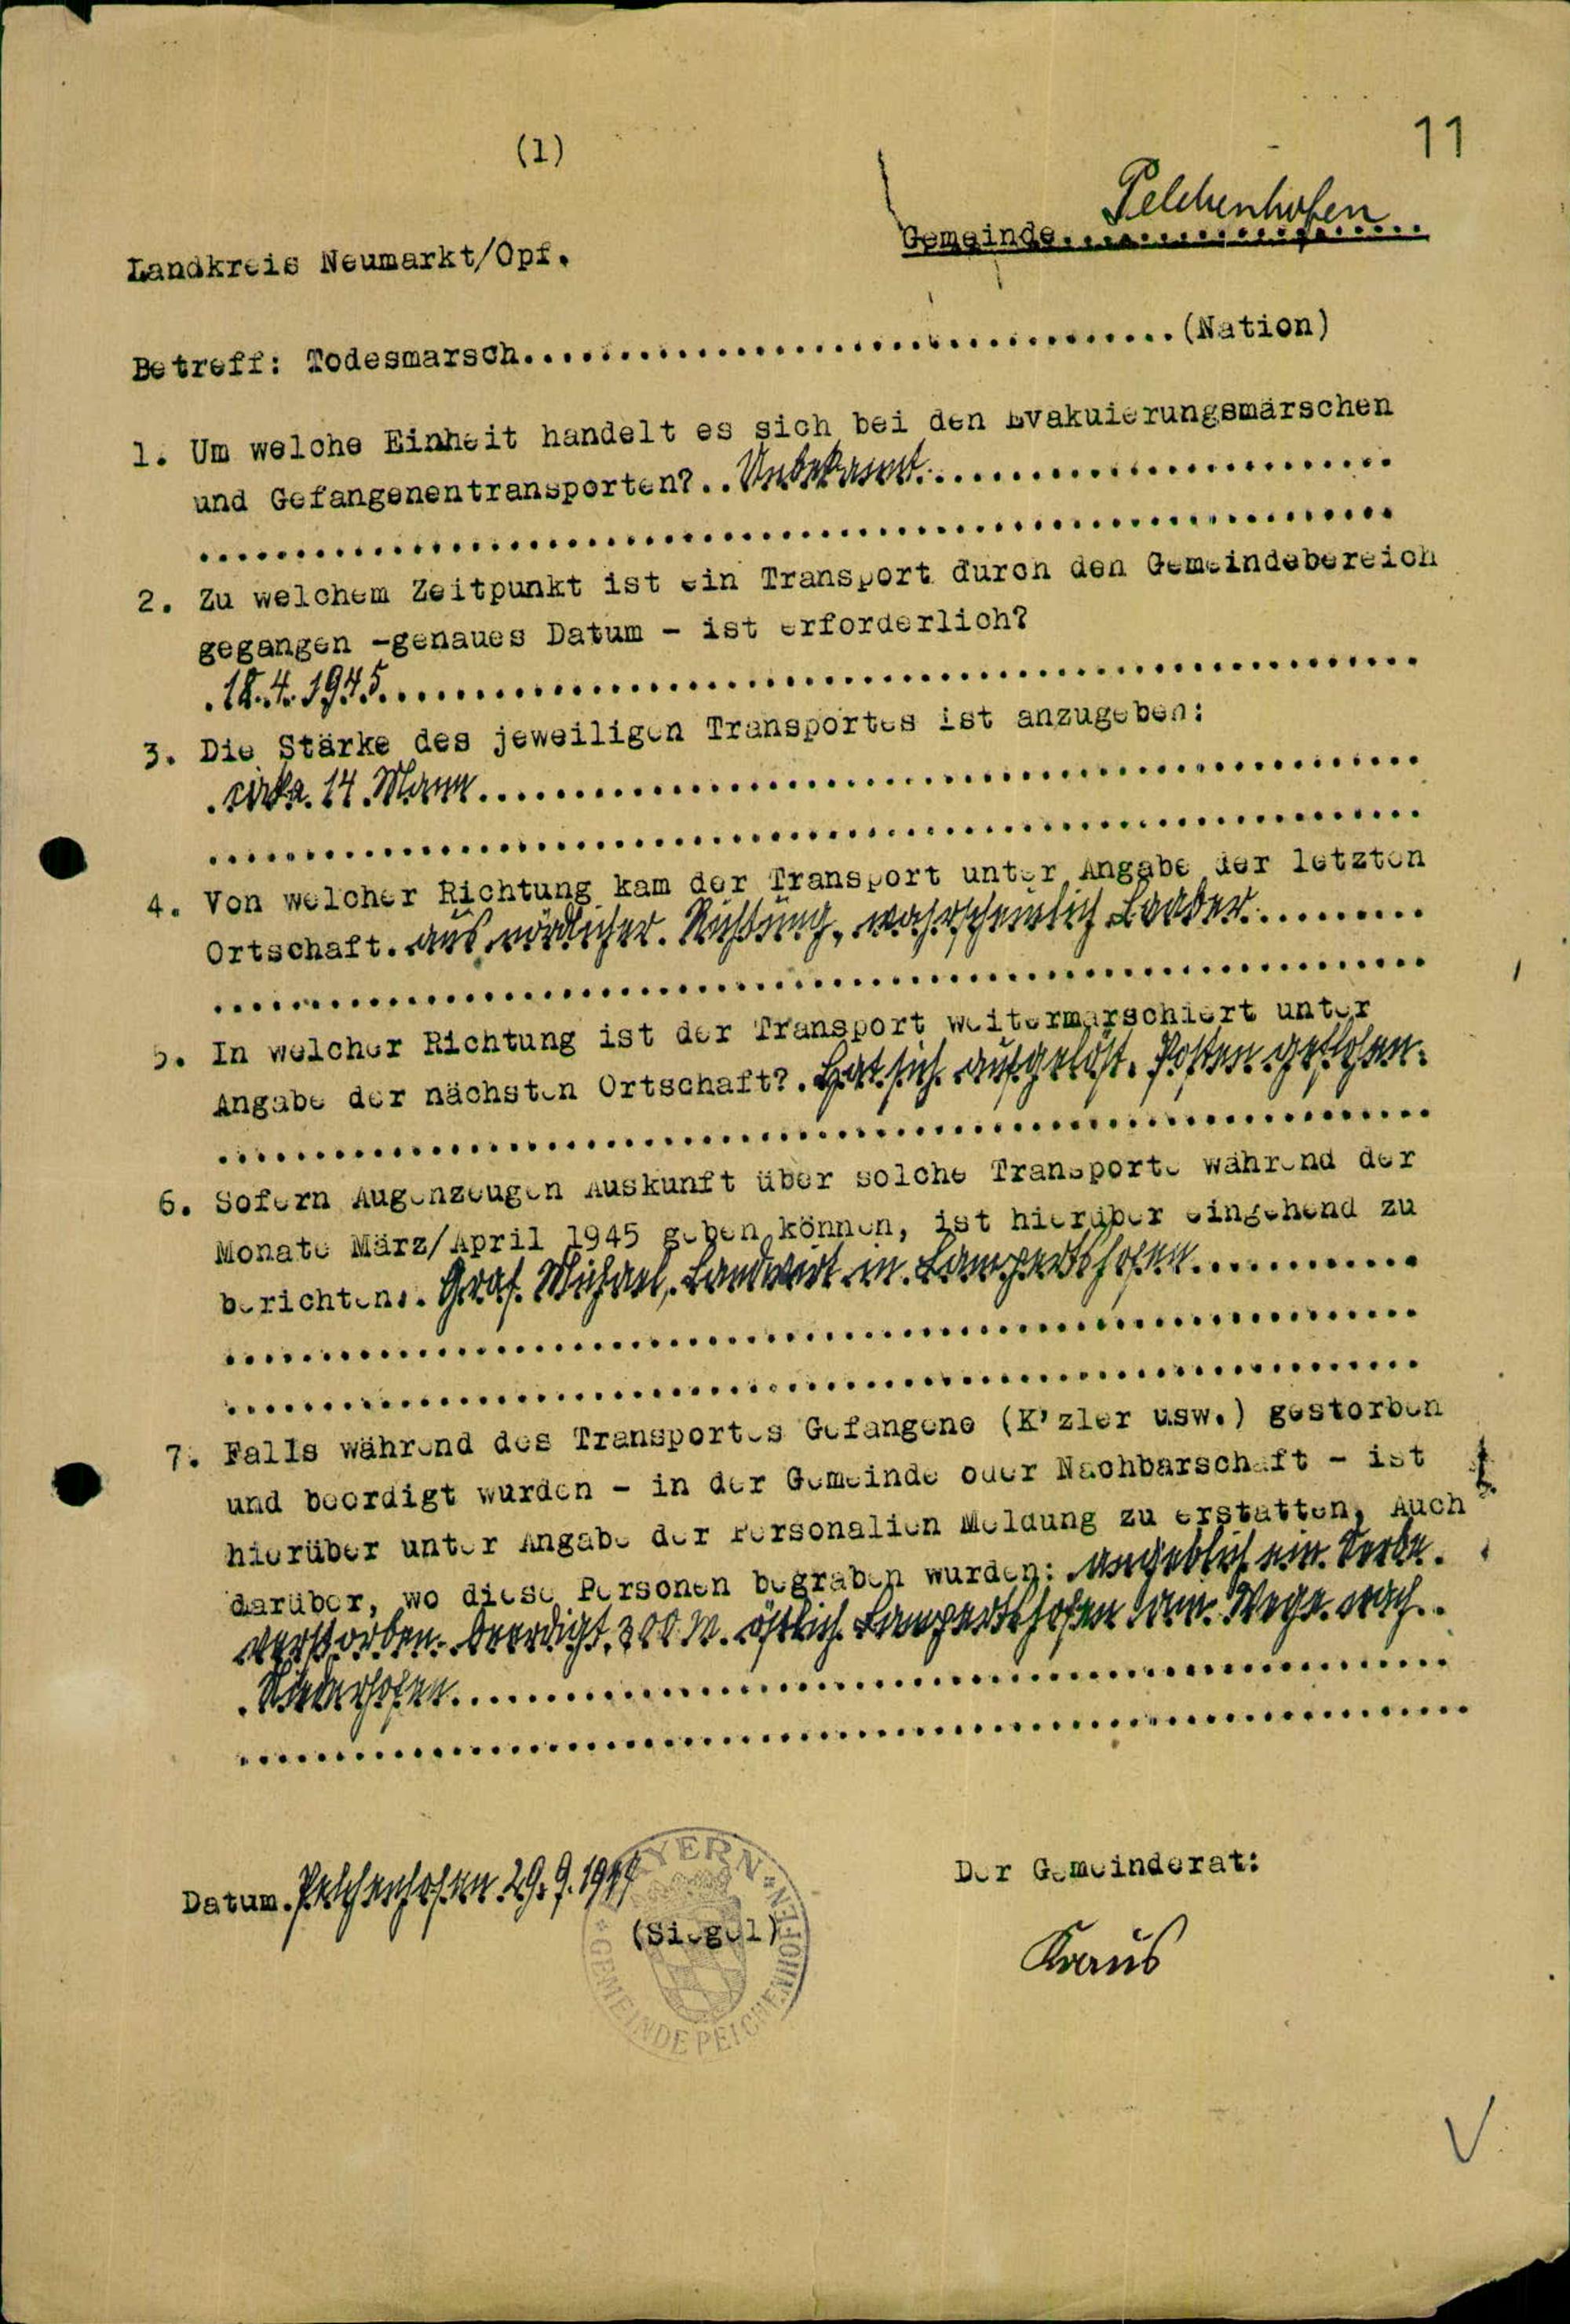 11
(1)
Gemeinde....Pelchenhofen....
Landkreis Neumarkt/Opf.
Betreff: Todesmarsch....................................(Nation)
1. Um welche Einheit handelt es sich bei den Evakuierungsmärschen
und Gefangenentransporten?..Unbekannt.........................
2. Zu welchem Zeitpunkt ist ein Transport durch den Gemeindebereich
gegangen -genaues Datum - ist erforderlich?
.18.4.1945.........................
3. Die Stärke des jeweiligen Transportes ist anzugeben:
.cirka.14.Mann.........................
4. Von welcher Richtung kam der Transport unter Angabe der letzten
Ortschaft.aus nördlicher.Richtung, wahrscheinlich Laaber.........
5. In welcher Richtung ist der Transport weitermarschiert unter
Angabe der nächsten Ortschaft?.Hat sich aufgelöst. Posten geflohen.
6. Sofern Augenzeugen Auskunft über solche Transporte während der
Monate März/April 1945 geben können, ist hierüber eingehend zu
berichten..Graf Michael, Landwirt in Lampertshofen............
7. Falls während des Transportes Gefangene (K'zler usw.) gestorben
und beerdigt wurden - in der Gemeinde oder Nachbarschaft - ist
hierüber unter Angabe der Personalien Meldung zu erstatten, Auch
darüber, wo diese Personen begraben wurden: angeblich ein Serbe.
verstorben. beerdigt 300 M. östlich Lampertshofen am Wege nach
.Niederhofen.........................
Datum.Pelchenhofen 29.9.1947
(Siegel)
BAYERN
GEMEINDE PELCHENHOFEN
Der Gemeinderat:
Kraus